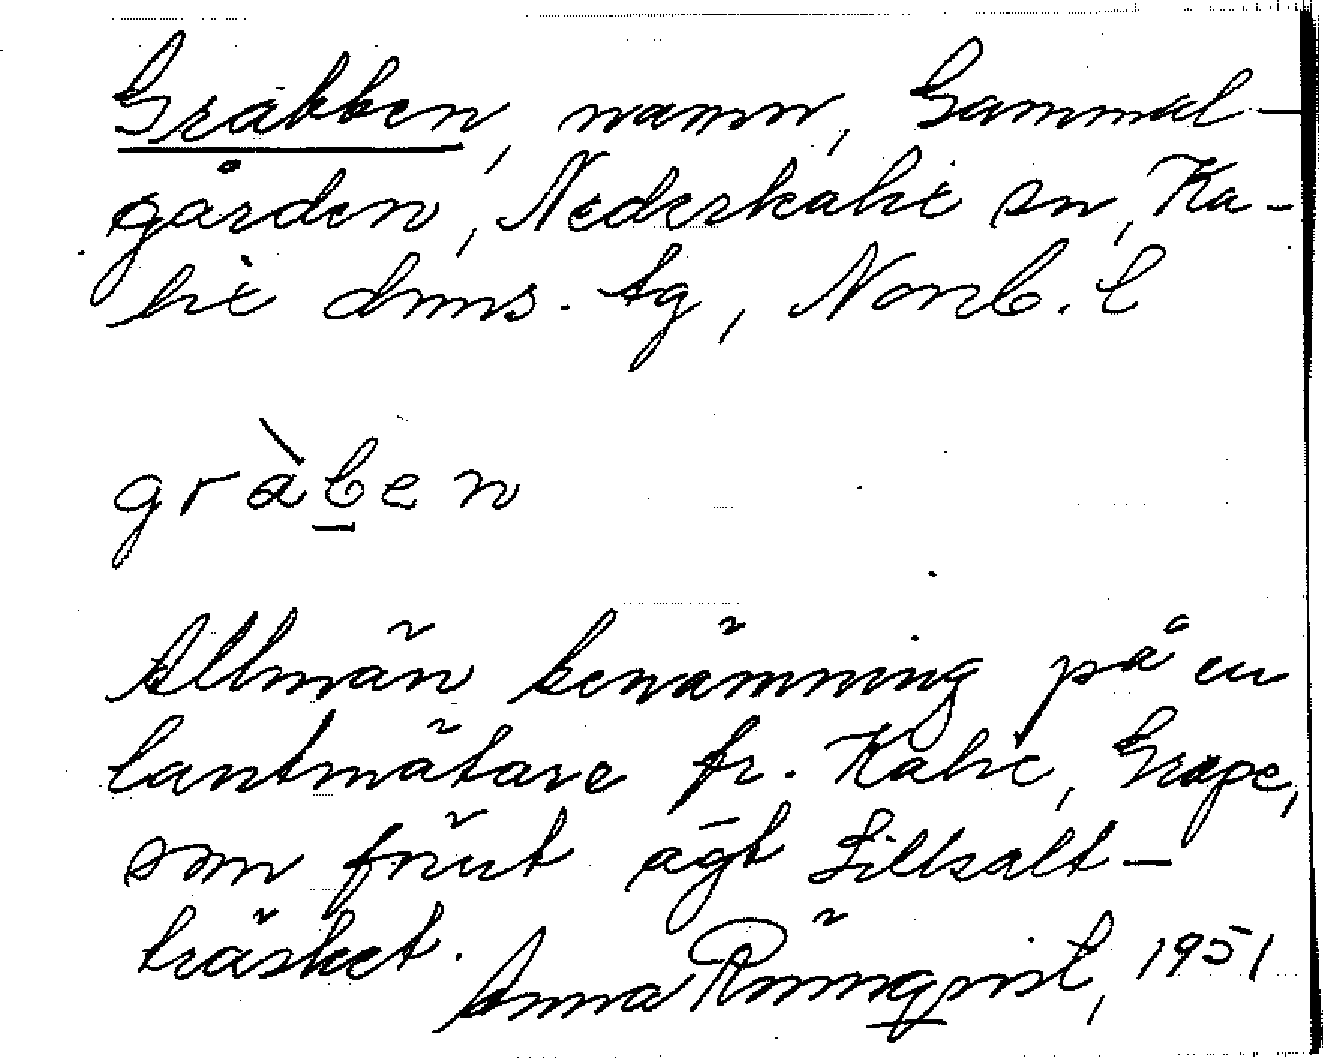 Grabben, namn, Gammel-
gården, Nederkalix sn, Ka-
lix dms. tg, Norrb. l
gràben
Allmän benämning på en
lantmätare fr. Kalix, Grape,
som förut ägt Lillsalt-
träsket. Anna Rönnqvist, 1951